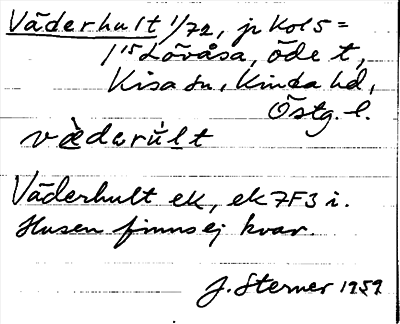 Väderhult 1/72, jr Kol 5 =
1/15 Lövåsa, öde t,
Kisa sn, Kinda hd,
Östg. l.
vàderùlt
Väderhult ek, ek 7F3 i.
Husen finns ej kvar.
J. Sterner 1959